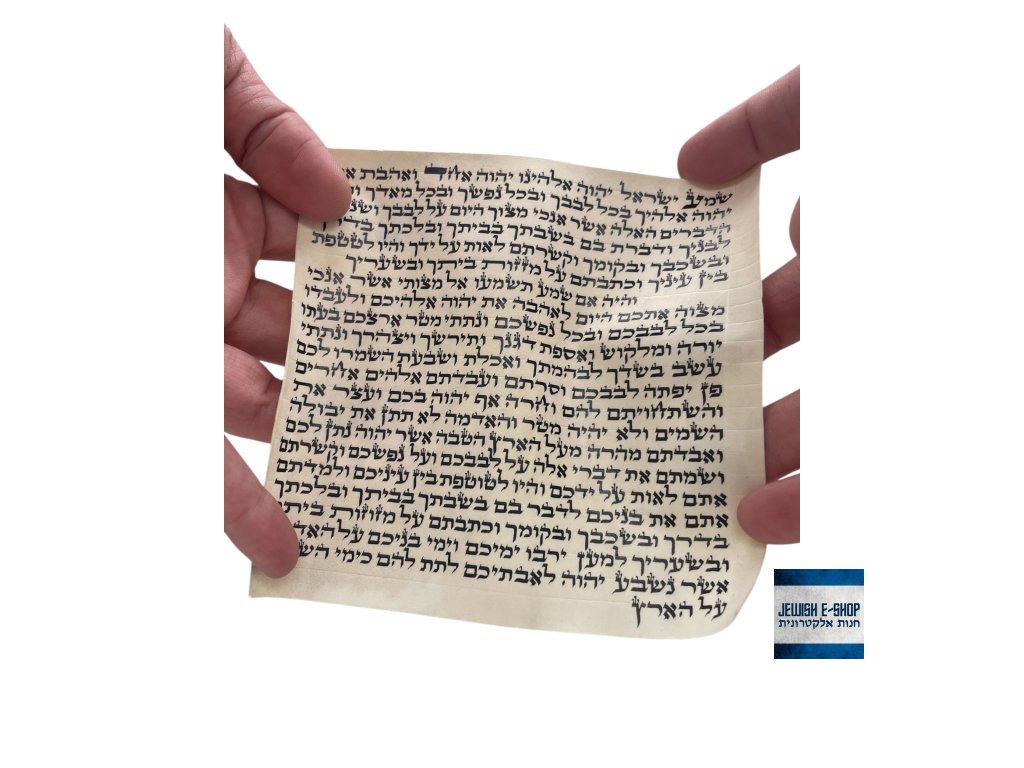 שמע ישראל יהוה אלהינו יהוה אחד ואהבת
יהוה אלהיך בכל לבבך ובכל נפשך ובכל מאדך
הדברים האלה אשר אנכי מצוך היום על לבבך
לבניך ודברת בם בשבתך בביתך ובלכתך בדרך
ובשכבך ובקומך וקשרתם לאות על ידך והיו לטטפת
בין עיניך וכתבתם על מזזות ביתך ובשעריך
והיה אם שמע תשמעו אל מצותי אשר אנכי
מצוה אתכם היום לאהבה את יהוה אלהיכם ולעבדו
בכל לבבכם ובכל נפשכם ונתתי מטר ארצכם בעתו
יורה ומלקוש ואספת דגנך ותירשך ויצהרך ונתתי
עשב בשדך לבהמתך ואכלת ושבעת השמרו לכם
פן יפתה לבבכם וסרתם ועבדתם אלהים אחרים
והשתחויתם להם וחרה אף יהוה בכם ועצר את
השמים ולא יהיה מטר והאדמה לא תתן את יבולה
ואבדתם מהרה מעל הארץ הטבה אשר יהוה נתן לכם
ושמתם את דברי אלה על לבבכם ועל נפשכם וקשרתם
אתם לאות על ידכם והיו לטוטפת בין עיניכם ולמדתם
אתם את בניכם לדבר בם בשבתך בביתך ובלכתך
בדרך ובשכבך ובקומך וכתבתם על מזוזות
ובשעריך למען ירבו ימיכם וימי בניכם על
אשר נשבע יהוה לאבתיכם לתת להם כימי
על הארץ
JEWISH E-SHOP
חנות אלקטרונית